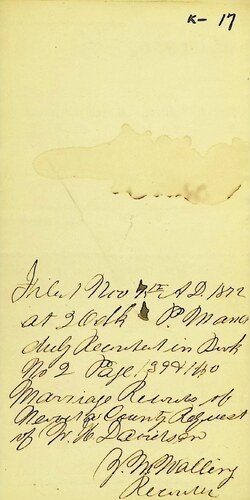 K- 17
Filed Nov 7th A.D. 1872
at 3 Oclk P. M and
duly Recorded in Book
No 2 Page 139 & 140
Marriage Records of
County Request
of W. H. Davidson
Recorder